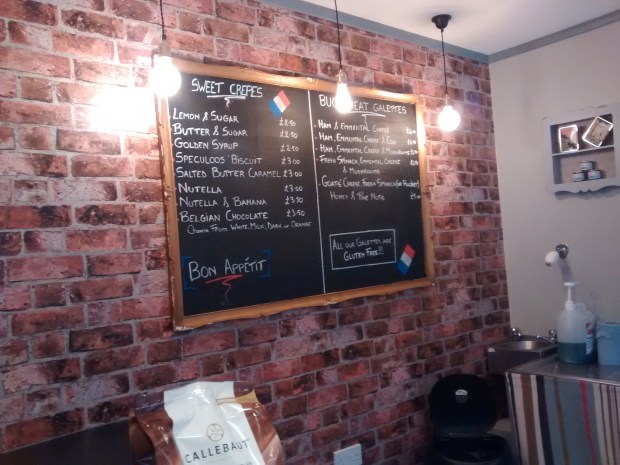 SWEET CREPES
LEMON & SUGAR £2.50
BUTTER & SUGAR £2.50
GOLDEN SYRUP £2.50
SPECULOOS BISCUIT £3.00
SALTED BUTTER CARAMEL £3.00
NUTELLA £3.00
NUTELLA & BANANA £3.50
BELGIAN CHOCOLATE £3.50
CHOOSE FROM WHITE, MILK, DARK OR ORANGE
BON APPÉTIT
GALETTES
- HAM & EMMENTAL CHEESE
- HAM, EMMENTAL CHEESE & EGG
- HAM, EMMENTAL CHEESE & MUSHROOMS
- FRESH SPINACH, EMMENTAL CHEESE
& MUSHROOMS
- GOATS' CHEESE, FRESH SPINACH
HONEY & PINE NUTS
ALL OUR GALETTES ARE
GLUTEN FREE!!!
CALLEBAUT